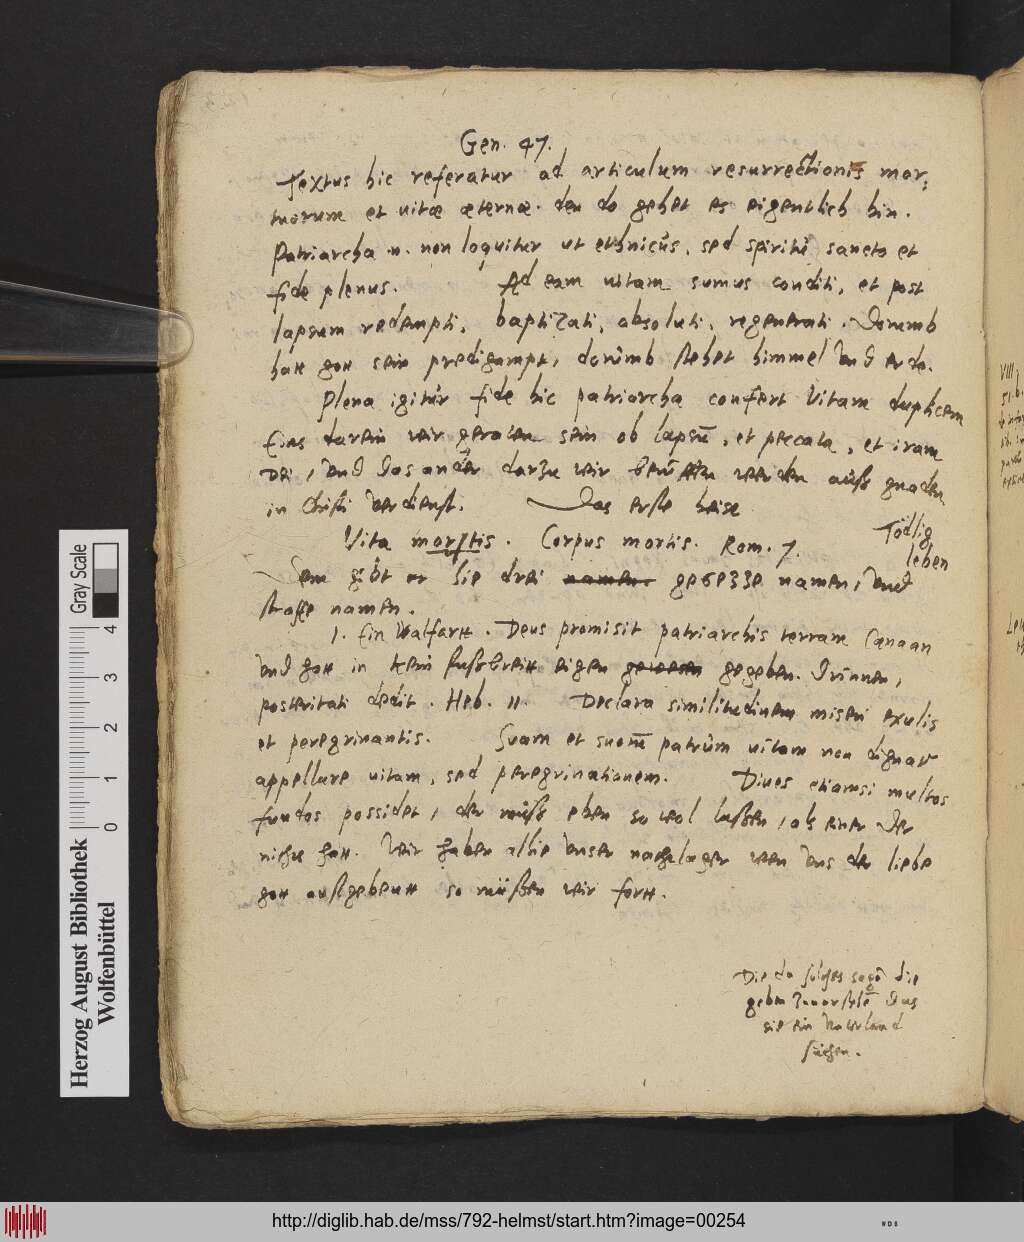 Gen. 47.
Textus hic referatur ad articulum resurrectionis mor:
tuorum et uitæ æternæ. den do gehet es eigentlich hin.
Patriarcha n. non loquitur ut ethnicus, sed spiritu sancto et
fide plenus. Ad eam uitam sumus conditi, et post
lapsum redempti, baptizati, absoluti, regenerati. Dorumb
hatt gott sein predigampt, dorumb stehet himmel vnd erde.
Plena igitur fide hic patriarcha confert Vitam duplicem
Eins darein wir geraten sein ob lapsū, et peccata, et iram
Dei, vnd das ander darzu wir beruffen werden auß gnaden
in Christi verdienst. Das erste heise
Vita mortis. Corpus mortis. Rom. 7.
Tödlig
leben
Dem gibt er hie drei namen, vnd
straffe namen.
1. Ein Walfartt. Deus promisit patriarchis terram Canaan
vnd gott in kein fußbreitt eigen gegeben. Drinnen,
posteritati dedit. Heb. 11. Declara similitudinem miseri exulis
et peregrinantis. Suam et suorū patrum uitam non dignatur
appellare uitam, sed peregrinationem. Diues etiamsi multos
fundos possidet, der muß eben so wol laßen, als einer der
nichs hatt. Wir haben alhie vnser nachtlager wen vns der liebe
gott außgebeutt so müßen wir fortt.
Die do solches sagē die
geben zuuorstehē das
sie ein Vaterland
suchen.
Herzog August Bibliothek
Wolfenbüttel
Gray Scale
0 1 2 3 4
http://diglib.hab.de/mss/792-helmst/start.htm?image=00254